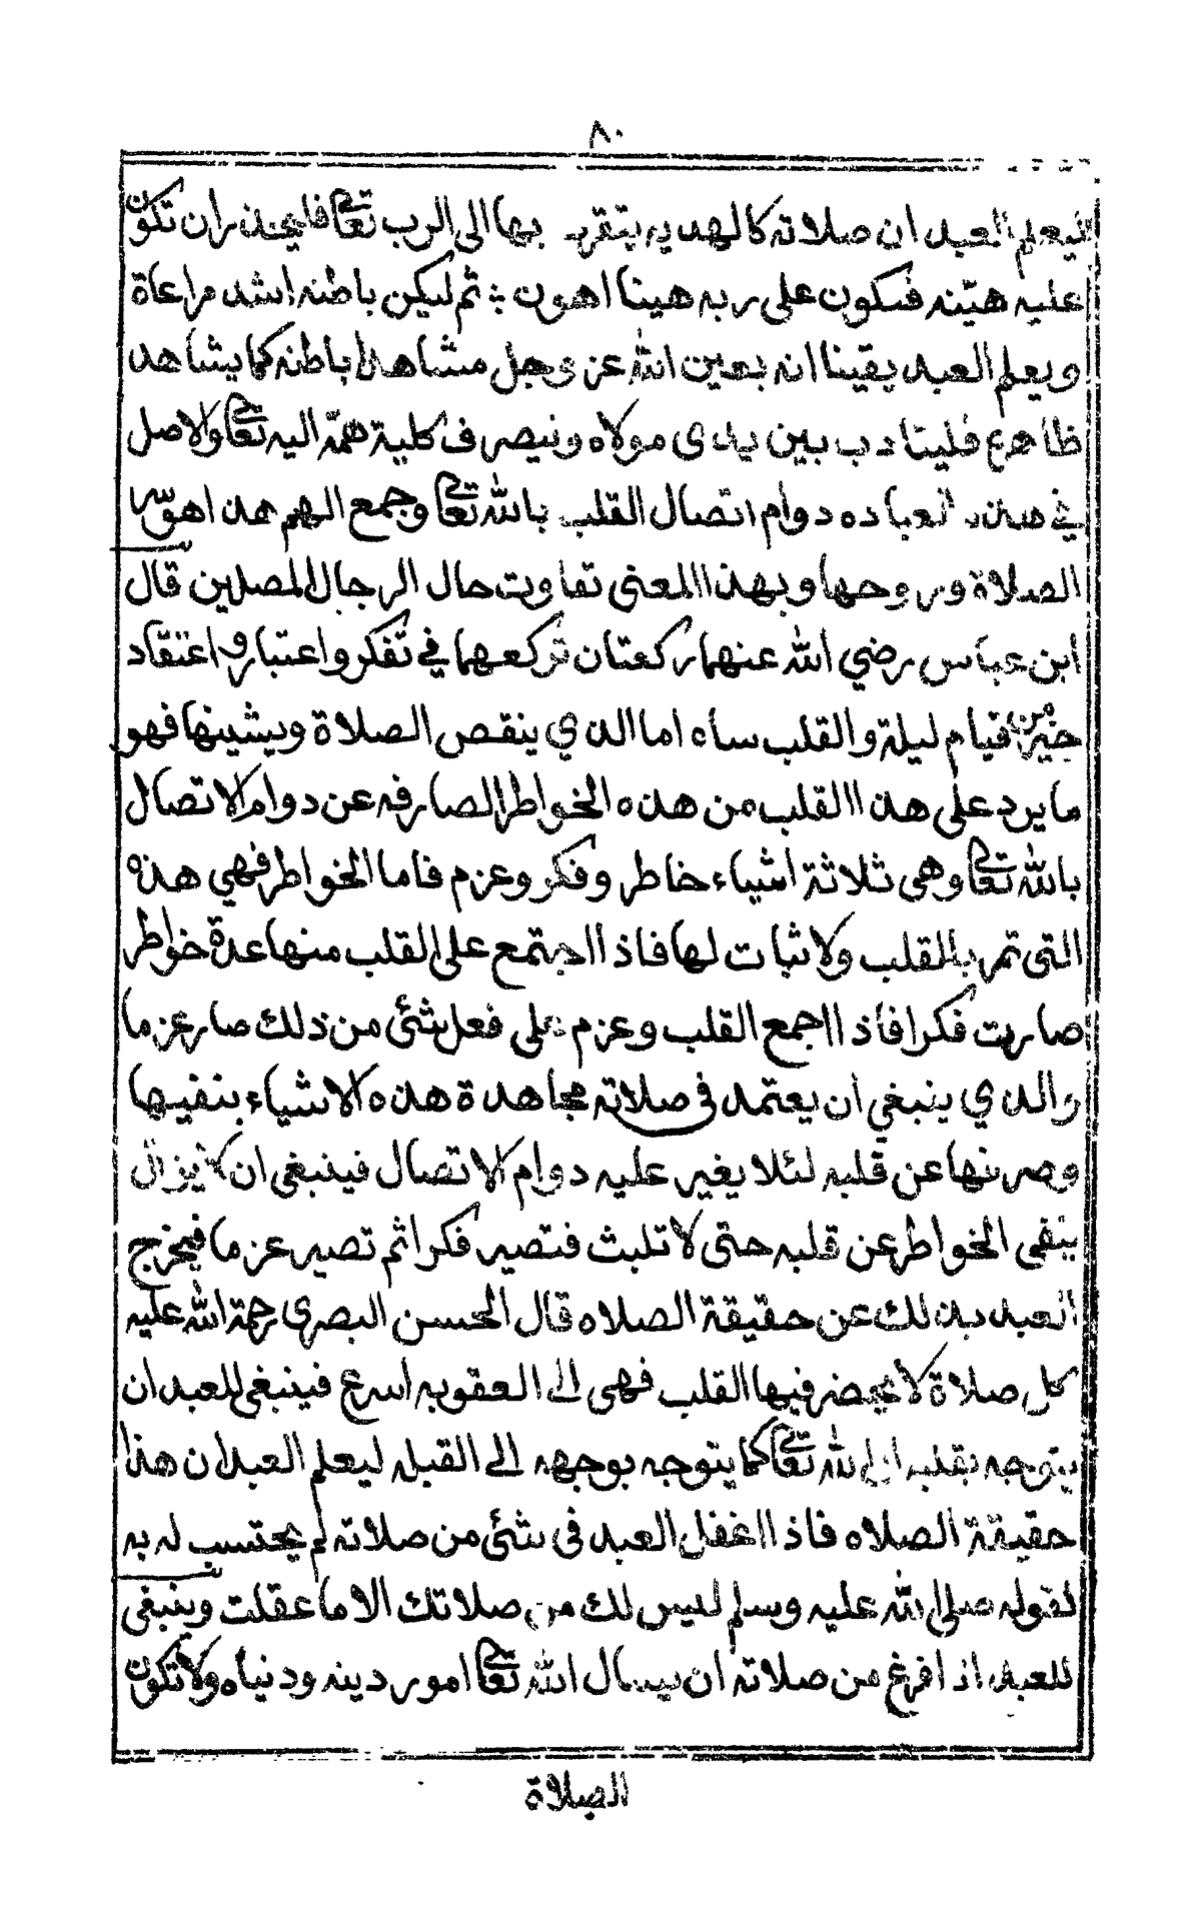 ٨٠
ليعلم العبد ان صلاته كالهديه يتقرب بها الى الرب تعالى فليحذر ان تكون
عليه هيّنه فتكون على ربه هينا اهون ثم ليكن باطنه اشد مراعاة
ويعلم العبد يقينا انه بعين الله عز وجل مشاهدا باطنه كما يشاهد
ظاهره فليتادب بين يدى مولاه ونيصرف كلية همّته اليه تعالى والاصل
في هذه العباده دوام اتصال القلب بالله تعالى وجمع الهم هذا هو سر
الصلاة وروحها وبهذا المعنى تفاوت حال الرجال المصلين قال
ابن عباس رضي الله عنهما ركعتان تركعهما في تفكر واعتبار واعتقاد
خير من قيام ليلة والقلب ساه اما الذي ينقص الصلاة ويشينها فهو
ما يرد على هذا القلب من هذه الخواطر الصارفه عن دوام الاتصال
بالله تعالى وهى ثلاثة اشياء خاطر وفكر وعزم فاما الخواطر فهي هذه
التى تمر بالقلب ولا ثبات لها فاذا اجتمع على القلب منها عدة خواطر
صارت فكرا فاذا اجمع القلب وعزم على فعل شئ من ذلك صار عزما
والذي ينبغي ان يعتمد فى صلاته مجاهدة هذه الاشياء بنفيها
وصرفها عن قلبه لئلا يغير عليه دوام الاتصال فينبغى ان لا يزال
ينفى الخواطر عن قلبه حتى لا تلبث فتصير فكرا ثم تصير عزما فيخرج
العبد بذلك عن حقيقة الصلاه قال الحسن البصرى رحمة الله عليه
كل صلاة لا يحضر فيها القلب فهى الى العقوبه اسرع فينبغى للعبد ان
يتوجه بقلبه الى الله تعالى كما يتوجه بوجهه الى القبله ليعلم العبد ان هذا
حقيقة الصلاه فاذا اغفل العبد فى شئ من صلاته لم يحتسب له به
لقوله صلى الله عليه وسلم ليس لك من صلاتك الا ما عقلت وينبغى
للعبد اذا فرغ من صلاته ان يسال الله تعالى امور دينه ودنياه ولا تكون
الصلاة